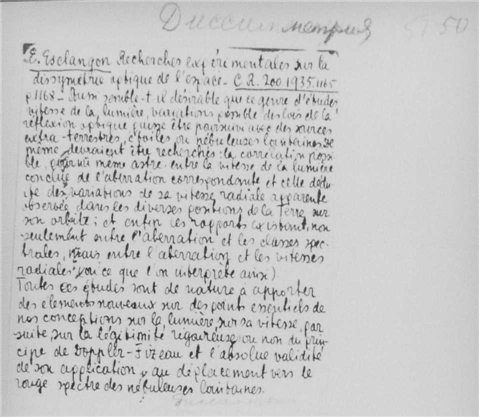 Дисси метрия 50
E. Esclangon Recherches expérimentales sur la
dissymétrie optique de l'espace - C.R. 200 1935. 1165
p 1168 - Aussi semble-t-il désirable que ce genre d'études
vitesse de la lumière, variations possible des lois de la
réflexion optique puisse être poursuivi avec des sources
extra-terrestres, étoiles ou nébuleuses lointaines. De
même devraient être recherchés: la corrélation possi
ble, pour un même astre entre la vitesse de la lumière
conclue de l'aberration correspondante et celle dédu
ite des variations de sa vitesse radiale apparente
observée dans les diverses positions de la Terre sur
son orbite; et enfin les rapports existant, non
seulement entre l'aberration et les classes spec
trales, mais entre l'aberration et les vitesses
radiales (ou ce que l'on interprète ainsi)
Toutes ces études sont de nature à apporter
des éléments nouveaux sur des points essentiels de
nos conceptions sur la lumière, sur sa vitesse, par
suite, sur la légitimité rigoureuse ou non du prin
cipe de Doppler-Fizeau et l'absolue validité
de son application au déplacement vers le
rouge spectre des nébuleuses lointaines.